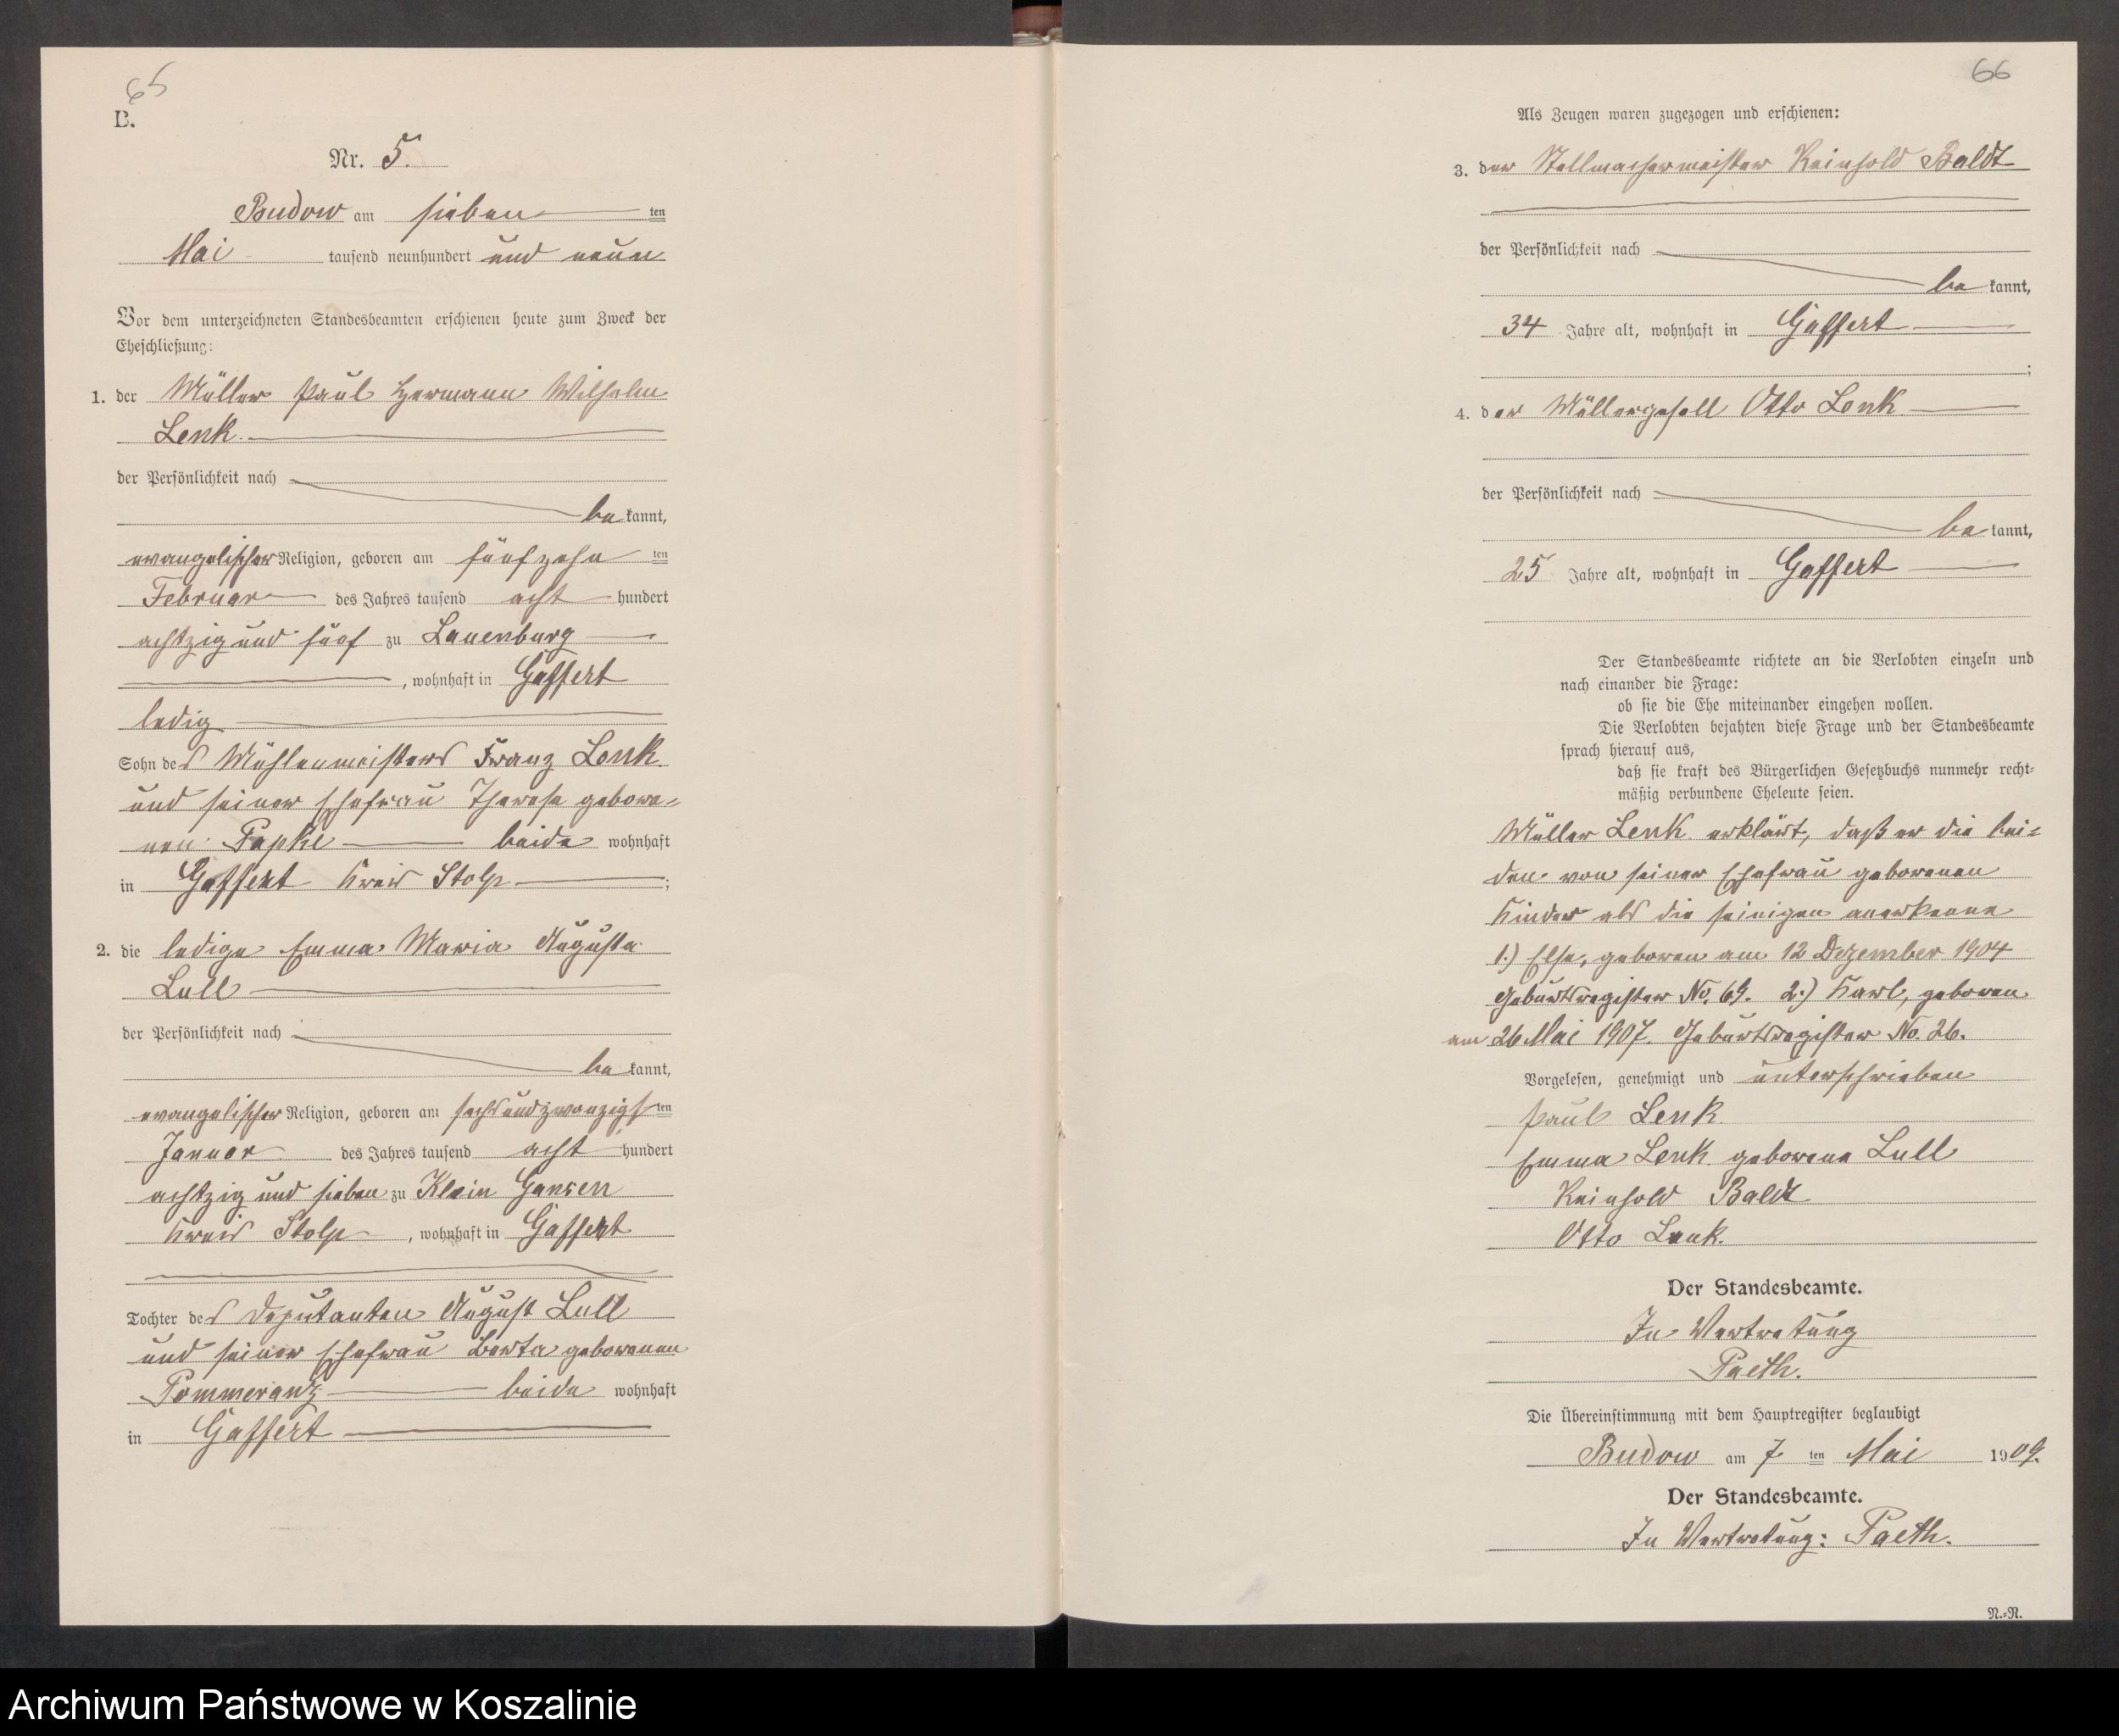 65
B.
Nr. 5.
Budow am sieben ten
Mai tausend neunhundert und neun
Vor dem unterzeichneten Standesbeamten erschienen heute zum Zweck der
Eheschließung:
1. der Müller Paul Hermann Wilhelm
Lenk.
der Persönlichkeit nach
be kannt,
evangelischer Religion, geboren am fünfzehn ten
Februar des Jahres tausend acht hundert
achtzig und fünf zu Lauenburg
, wohnhaft in Gaffert
ledig
Sohn des Mühlenmeisters Franz Lenk
und seiner Ehefrau Therese gebore-
nen Papke beide wohnhaft
in Gaffert Kreis Stolp ;
2. die ledige Emma Maria Augusta
Lull
der Persönlichkeit nach
be kannt,
evangelischer Religion, geboren am sechsundzwanzigs ten
Januar des Jahres tausend acht hundert
achtzig und sieben zu Klein Gansen
Kreis Stolp , wohnhaft in Gaffert
Tochter des Deputanten August Lull
und seiner Ehefrau Berta geborenen
Pommeranz beide wohnhaft
in Gaffert
66
Als Zeugen waren zugezogen und erschienen:
3. der Stellmachermeister Reinhold Baldt
der Persönlichkeit nach
be kannt,
34 Jahre alt, wohnhaft in Gaffert
;
4. der Müllergesell Otto Lenk
der Persönlichkeit nach
be kannt,
25 Jahre alt, wohnhaft in Gaffert
Der Standesbeamte richtete an die Verlobten einzeln und
nach einander die Frage:
ob sie die Ehe miteinander eingehen wollen.
Die Verlobten bejahten diese Frage und der Standesbeamte
sprach hierauf aus,
daß sie kraft des Bürgerlichen Gesetzbuchs nunmehr recht-
mäßig verbundene Eheleute seien.
Müller Lenk erklärt, daß er die bei-
den von seiner Ehefrau geborenen
Kinder als die seinigen anerkenne
1.) Else, geboren am 12 Dezember 1904
Geburtsregister No. 69. 2.) Karl, geboren
am 26 Mai 1907. Geburtsregister No. 26.
Vorgelesen, genehmigt und unterschrieben
Paul Lenk
Emma Lenk geborene Lull
Reinhold Baldt
Otto Lenk.
Der Standesbeamte.
In Vertretung
Paeth.
Die Übereinstimmung mit dem Hauptregister beglaubigt
Budow am 7 ten Mai 1909.
Der Standesbeamte.
In Vertretung: Paeth.
N.-N.
Archiwum Państwowe w Koszalinie